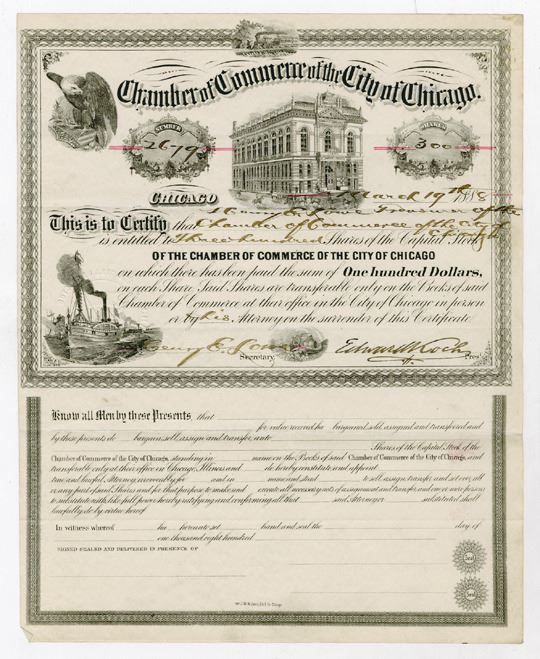 Chamber of Commerce of the City of Chicago.
NUMBER
2679
SHARES
300
CHICAGO March 19th 1888
This is to Certify that Henry E. Treasurer of the
Chamber of Commerce of the City of Chicago Ill
is entitled to Three hundred Shares of the Capital Stock
OF THE CHAMBER OF COMMERCE OF THE CITY OF CHICAGO
on which there has been paid the sum of One hundred Dollars,
on each Share. Said Shares are transferable only on the Books of said
Chamber of Commerce at their office in the City of Chicago in person
or by his Attorney on the surrender of this Certificate.
Henry E. Secretary. Edward Koch Prest.
Know all Men by these Presents, that
for value received ha bargained, sold, assigned and transferred and
by these presents do bargain, sell, assign and transfer, unto
Shares of the Capital Stock of the
Chamber of Commerce of the City of Chicago, standing in name on the Books of said Chamber of Commerce of the City of Chicago, and
transferable only at their office in Chicago, Illinois and do hereby constitute and appoint
true and lawful Attorney, irrevocably for and in name and stead to sell, assign, transfer, and set over, all
or any part of said Shares and for that purpose to make and execute all necessary acts of assignment and transfer, and one or more persons
to substitute with like full power, hereby ratifying and confirming all that said Attorney or substitute shall
lawfully do by virtue hereof
In witness whereof ha hereunto set hand and seal the day of
one thousand eight hundred
SIGNED SEALED AND DELIVERED IN PRESENCE OF
Seal
Seal